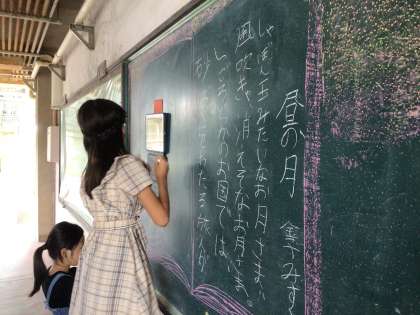 昼の月　金子みすゞ
しゃぼん玉みたいなお月さま、
風吹きゃ、消えそなお月さま。
いまごろどっかのお国では、
砂漠をわたる旅人が